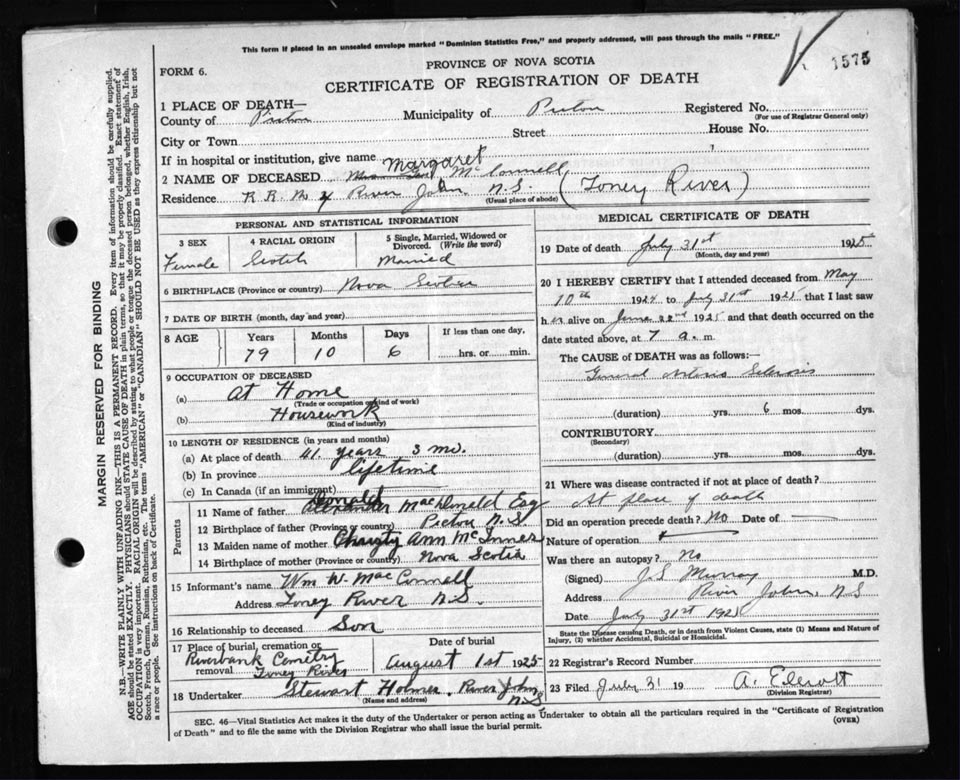 This form if placed in an unsealed envelope marked "Dominion Statistics Free," and properly addressed, will pass through the mails "FREE."
1575
PROVINCE OF NOVA SCOTIA
FORM 6.
CERTIFICATE OF REGISTRATION OF DEATH
1 PLACE OF DEATH—
County of Pictou Municipality of Pictou Registered No.
(For use of Registrar General only)
City or Town Street House No.
If in hospital or institution, give name
2 NAME OF DECEASED Margaret McConnell
Residence R. R. No River John N.S. (Toney River)
(Usual place of abode)
PERSONAL AND STATISTICAL INFORMATION
3 SEX
Female
4 RACIAL ORIGIN
Scotch
5 Single, Married, Widowed or Divorced. (Write the word)
Married
6 BIRTHPLACE (Province or country) Nova Scotia
7 DATE OF BIRTH (month, day and year)
8 AGE Years Months Days If less than one day,
79 10 6 hrs. or min.
9 OCCUPATION OF DECEASED
(a) At Home
(Trade or occupation or kind of work)
(b) Housework
(Kind of industry)
10 LENGTH OF RESIDENCE (in years and months)
(a) At place of death 41 years 3 mo.
(b) In province lifetime
(c) In Canada (if an immigrant)
Parents
11 Name of father Donald MacDonald Esq
12 Birthplace of father (Province or country) Pictou N.S
13 Maiden name of mother Christy Ann McInnes
14 Birthplace of mother (Province or country) Nova Scotia
15 Informant's name Wm W. MacConnell
Address Toney River N.S.
16 Relationship to deceased Son
17 Place of burial, cremation or removal Riverbank Cemetry Toney River
Date of burial
August 1st 1925
18 Undertaker Stewart Holmes River John N.S
(Name and address)
MEDICAL CERTIFICATE OF DEATH
19 Date of death July 31st 1925
(Month, day and year)
20 I HEREBY CERTIFY that I attended deceased from May
10th 1924 to July 31st 1925 that I last saw
her alive on June 22nd 1925 and that death occurred on the
date stated above, at 7 a. m.
The CAUSE OF DEATH was as follows:—
General Arterio Sclerosis
(duration) yrs. 6 mos. dys.
CONTRIBUTORY
(Secondary)
(duration) yrs. mos. dys.
21 Where was disease contracted if not at place of death?
At place of death
Did an operation precede death? No Date of
Nature of operation
Was there an autopsy? No
(Signed) J S Murray M.D.
Address River John, N S
Date July 31st 1925
State the Disease causing Death, or in death from Violent Causes, state (1) Means and Nature of
Injury, (2) whether Accidental, Suicidal or Homicidal.
22 Registrar's Record Number
23 Filed July 31 19 A.
(Division Registrar)
SEC. 46—Vital Statistics Act makes it the duty of the Undertaker or person acting as Undertaker to obtain all the particulars required in the "Certificate of Registration
of Death" and to file the same with the Division Registrar who shall issue the burial permit.
(OVER)
MARGIN RESERVED FOR BINDING
N.B.—WRITE PLAINLY WITH UNFADING INK—THIS IS A PERMANENT RECORD. Every item of information should be carefully supplied.
AGE should be stated EXACTLY. PHYSICIANS should STATE CAUSE OF DEATH in plain terms, so that it may be properly classified. Exact statement of
OCCUPATION is very important. RACIAL ORIGIN will be described by stating to what people or tongue the deceased person belonged, whether English, Irish,
Scotch, French, German, Russian, Ruthenian, etc. The terms "AMERICAN" or "CANADIAN" SHOULD NOT BE USED as they express citizenship but not
a race or people. See instructions on back of Certificate.